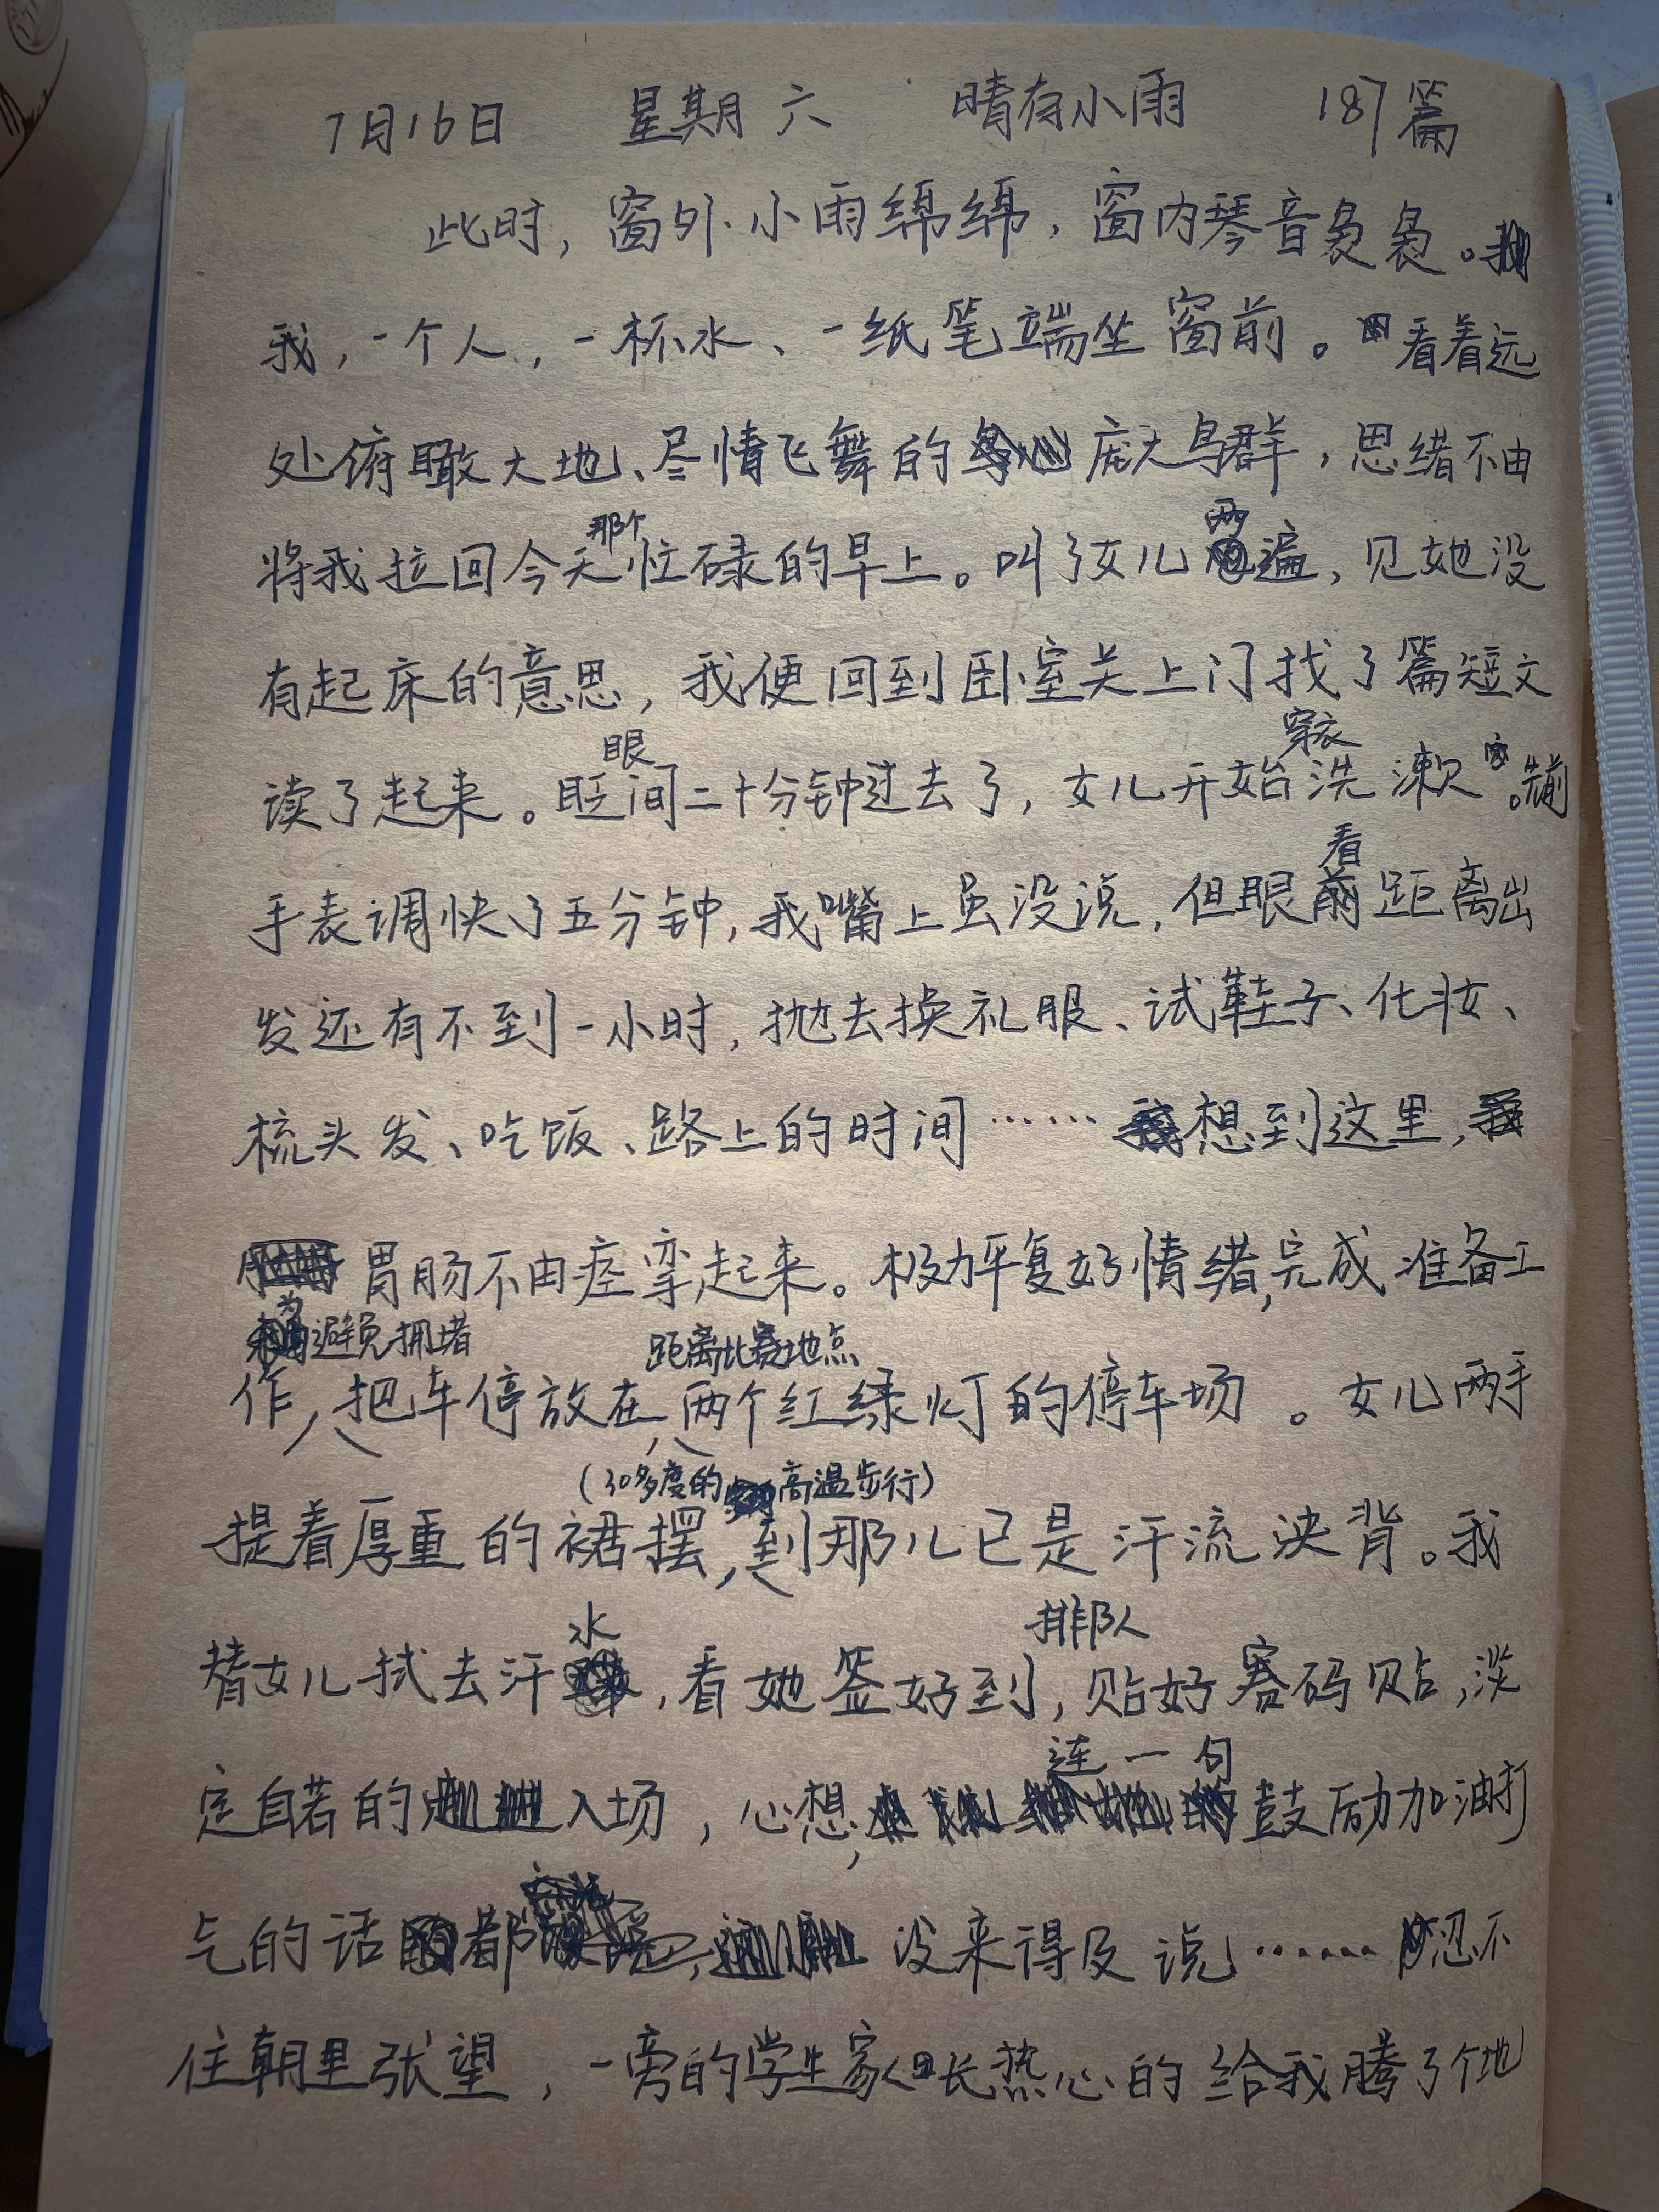 7月16日 星期六 晴有小雨 187篇
此时，窗外小雨绵绵，窗内琴音袅袅。
我，一个人，一杯水、一纸笔端坐窗前。看着远
处俯瞰大地、尽情飞舞的庞大鸟群，思绪不由
那个 两
将我拉回今天忙碌的早上。叫了女儿遍，见她没
有起床的意思，我便回到卧室关上门找了篇短文
眼 穿衣
读了起来。眨间二十分钟过去了，女儿开始洗漱。先前
看
手表调快了五分钟，我嘴上虽没说，但眼前距离出
发还有不到一小时，抛去换礼服、试鞋子、化妆、
梳头发、吃饭、路上的时间……想到这里，
胃肠不由痉挛起来。极力平复好情绪，完成准备工
为避免拥堵 距离比赛地点
作，把车停放在两个红绿灯的停车场。女儿两手
（30多度的高温步行）
提着厚重的裙摆，到那儿已是汗流浃背。我
水 排队
替女儿拭去汗，看她签好到，贴好赛码贴，淡
连一句
定自若的入场，心想，鼓励加油打
气的话都没来得及说……忍不
住朝里张望，一旁的学生家长热心的给我腾了个地